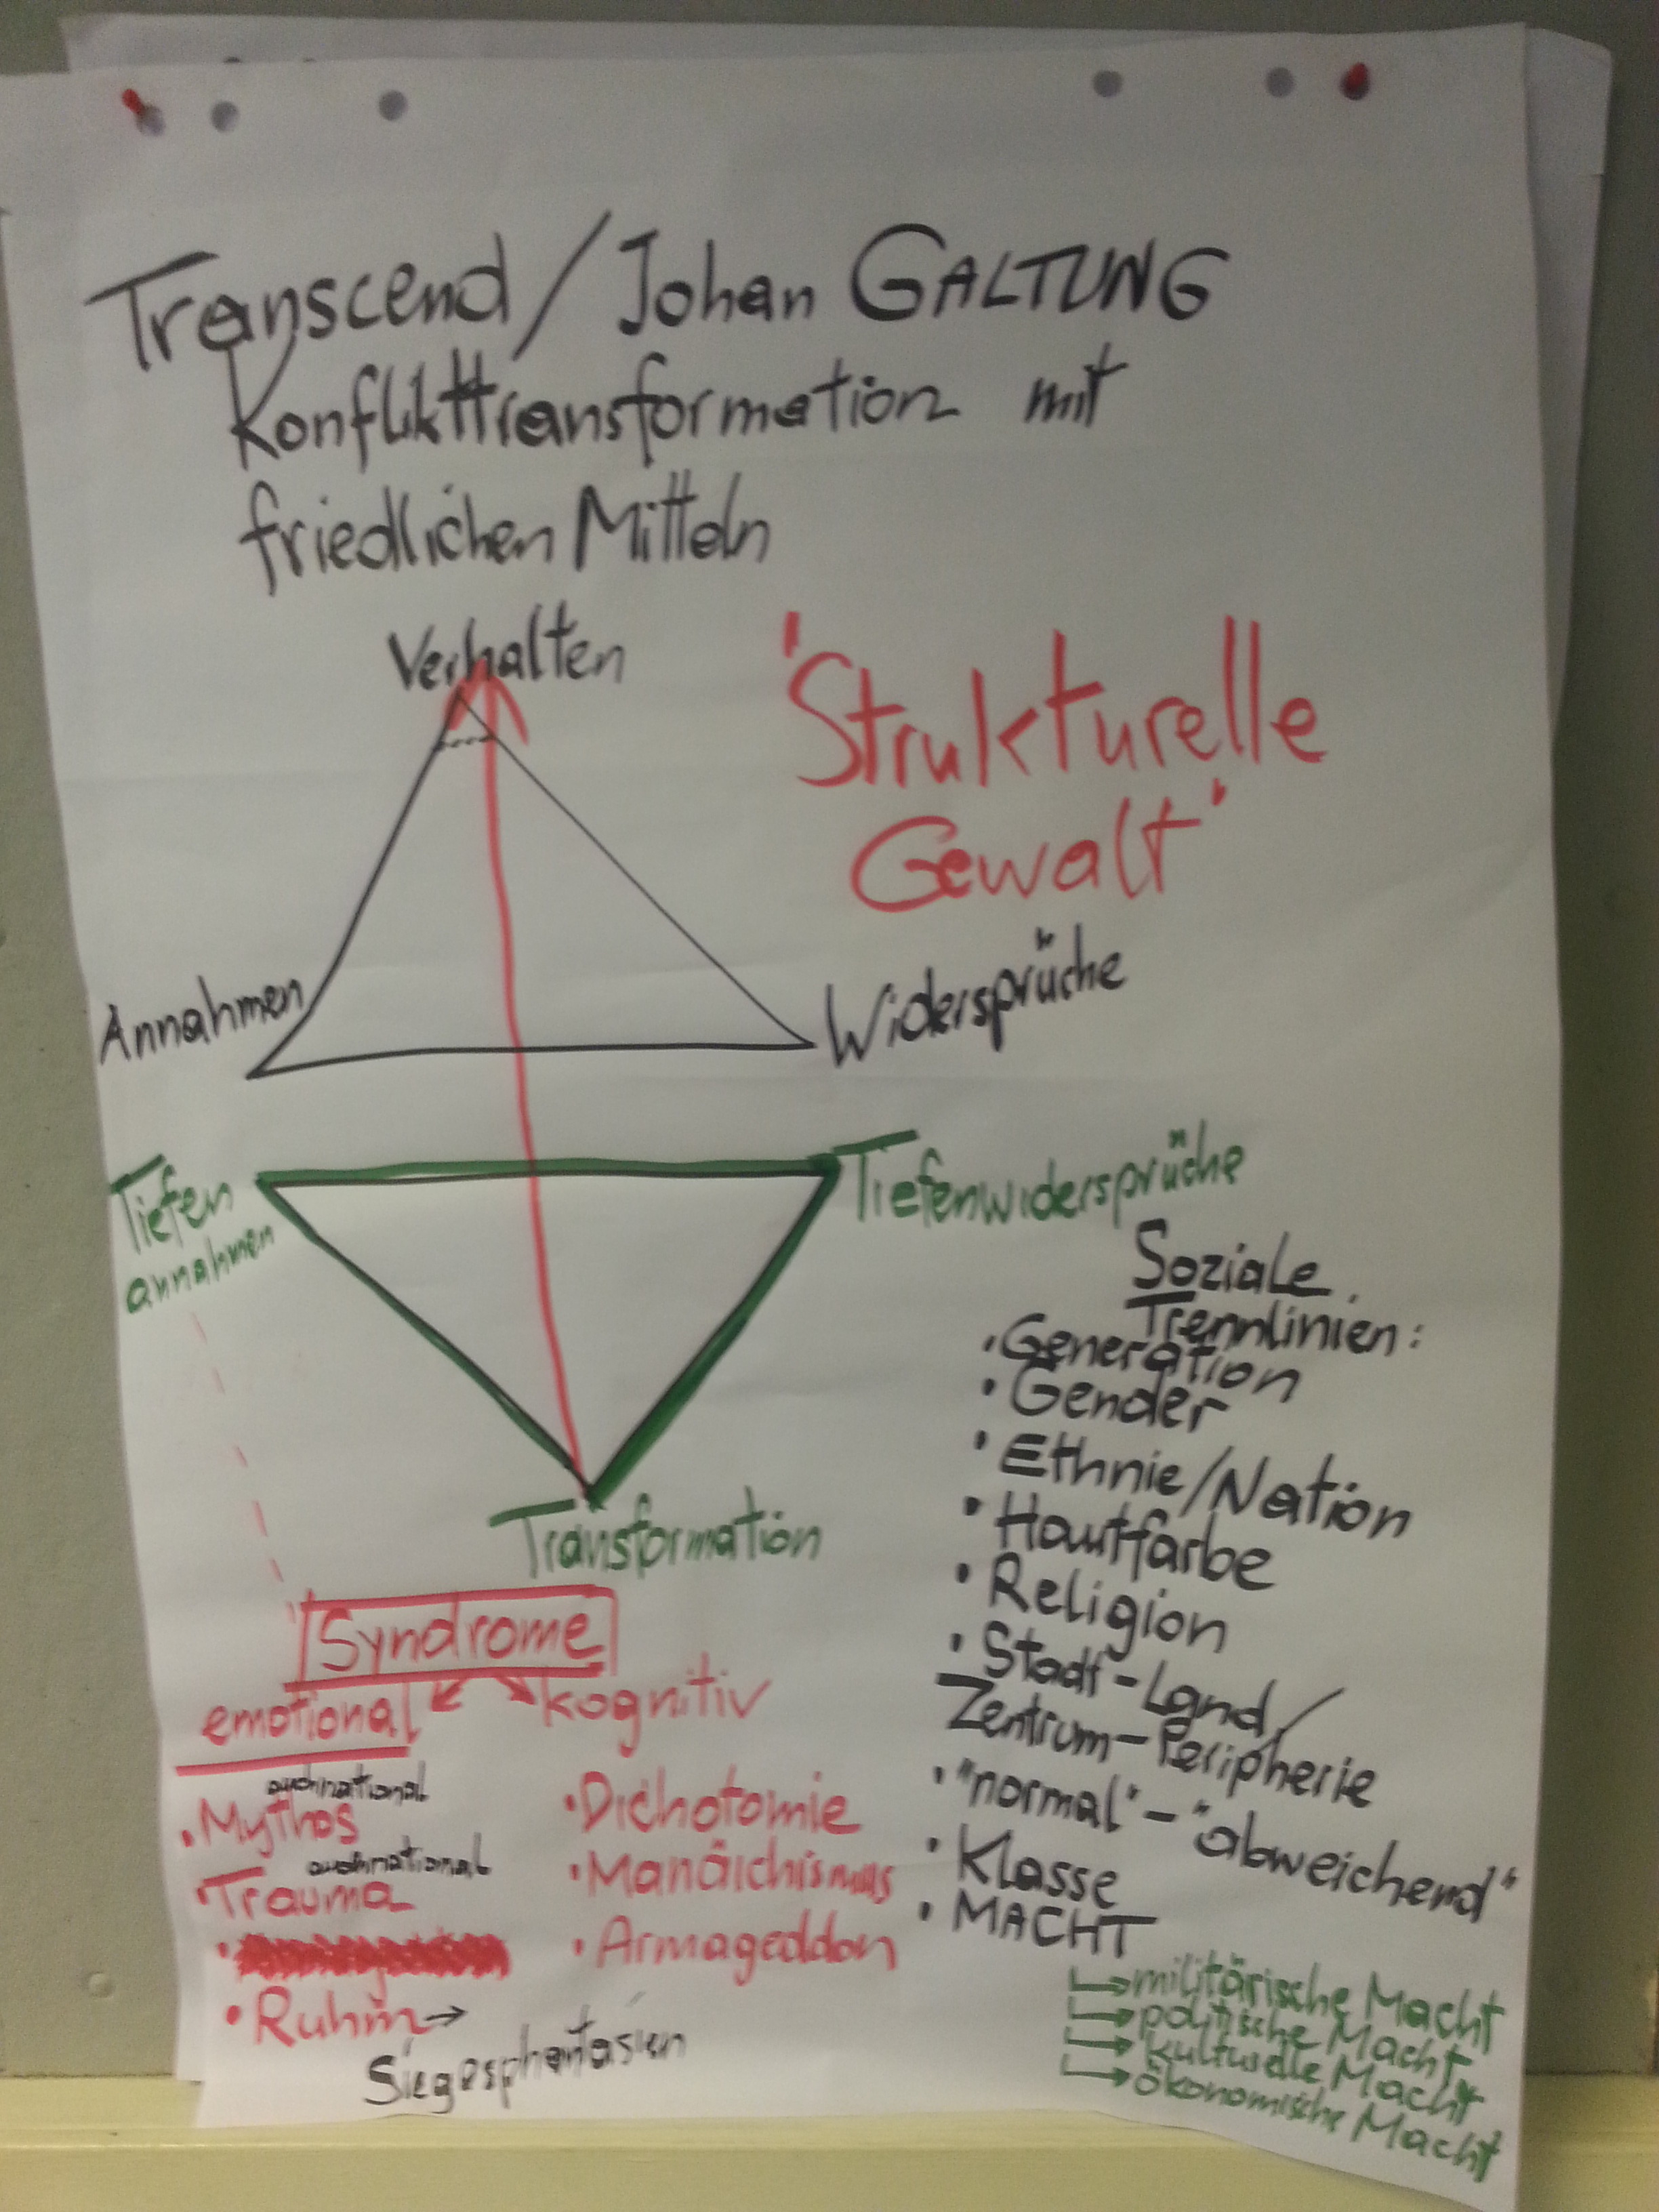 Transcend / Johan GALTUNG
Konflikttransformation mit
friedlichen Mitteln
Verhalten
'Strukturelle
Gewalt'
Annahmen
Widersprüche
Tiefen
annahmen
Tiefenwidersprüche
Transformation
Soziale
Trennlinien:
• Generation
• Gender
• Ethnie/Nation
• Hautfarbe
• Religion
• Stadt-Land/
Zentrum-Peripherie
• "normal" - "abweichend"
• Klasse
• MACHT
militärische Macht
politische Macht
kulturelle Macht
ökonomische Macht
Syndrome
emotional
kognitiv
auch national
• Mythos
auch national
• Trauma
• Ruhm →
Siegesphantasien
• Dichotomie
• Manäichismus
• Armageddon